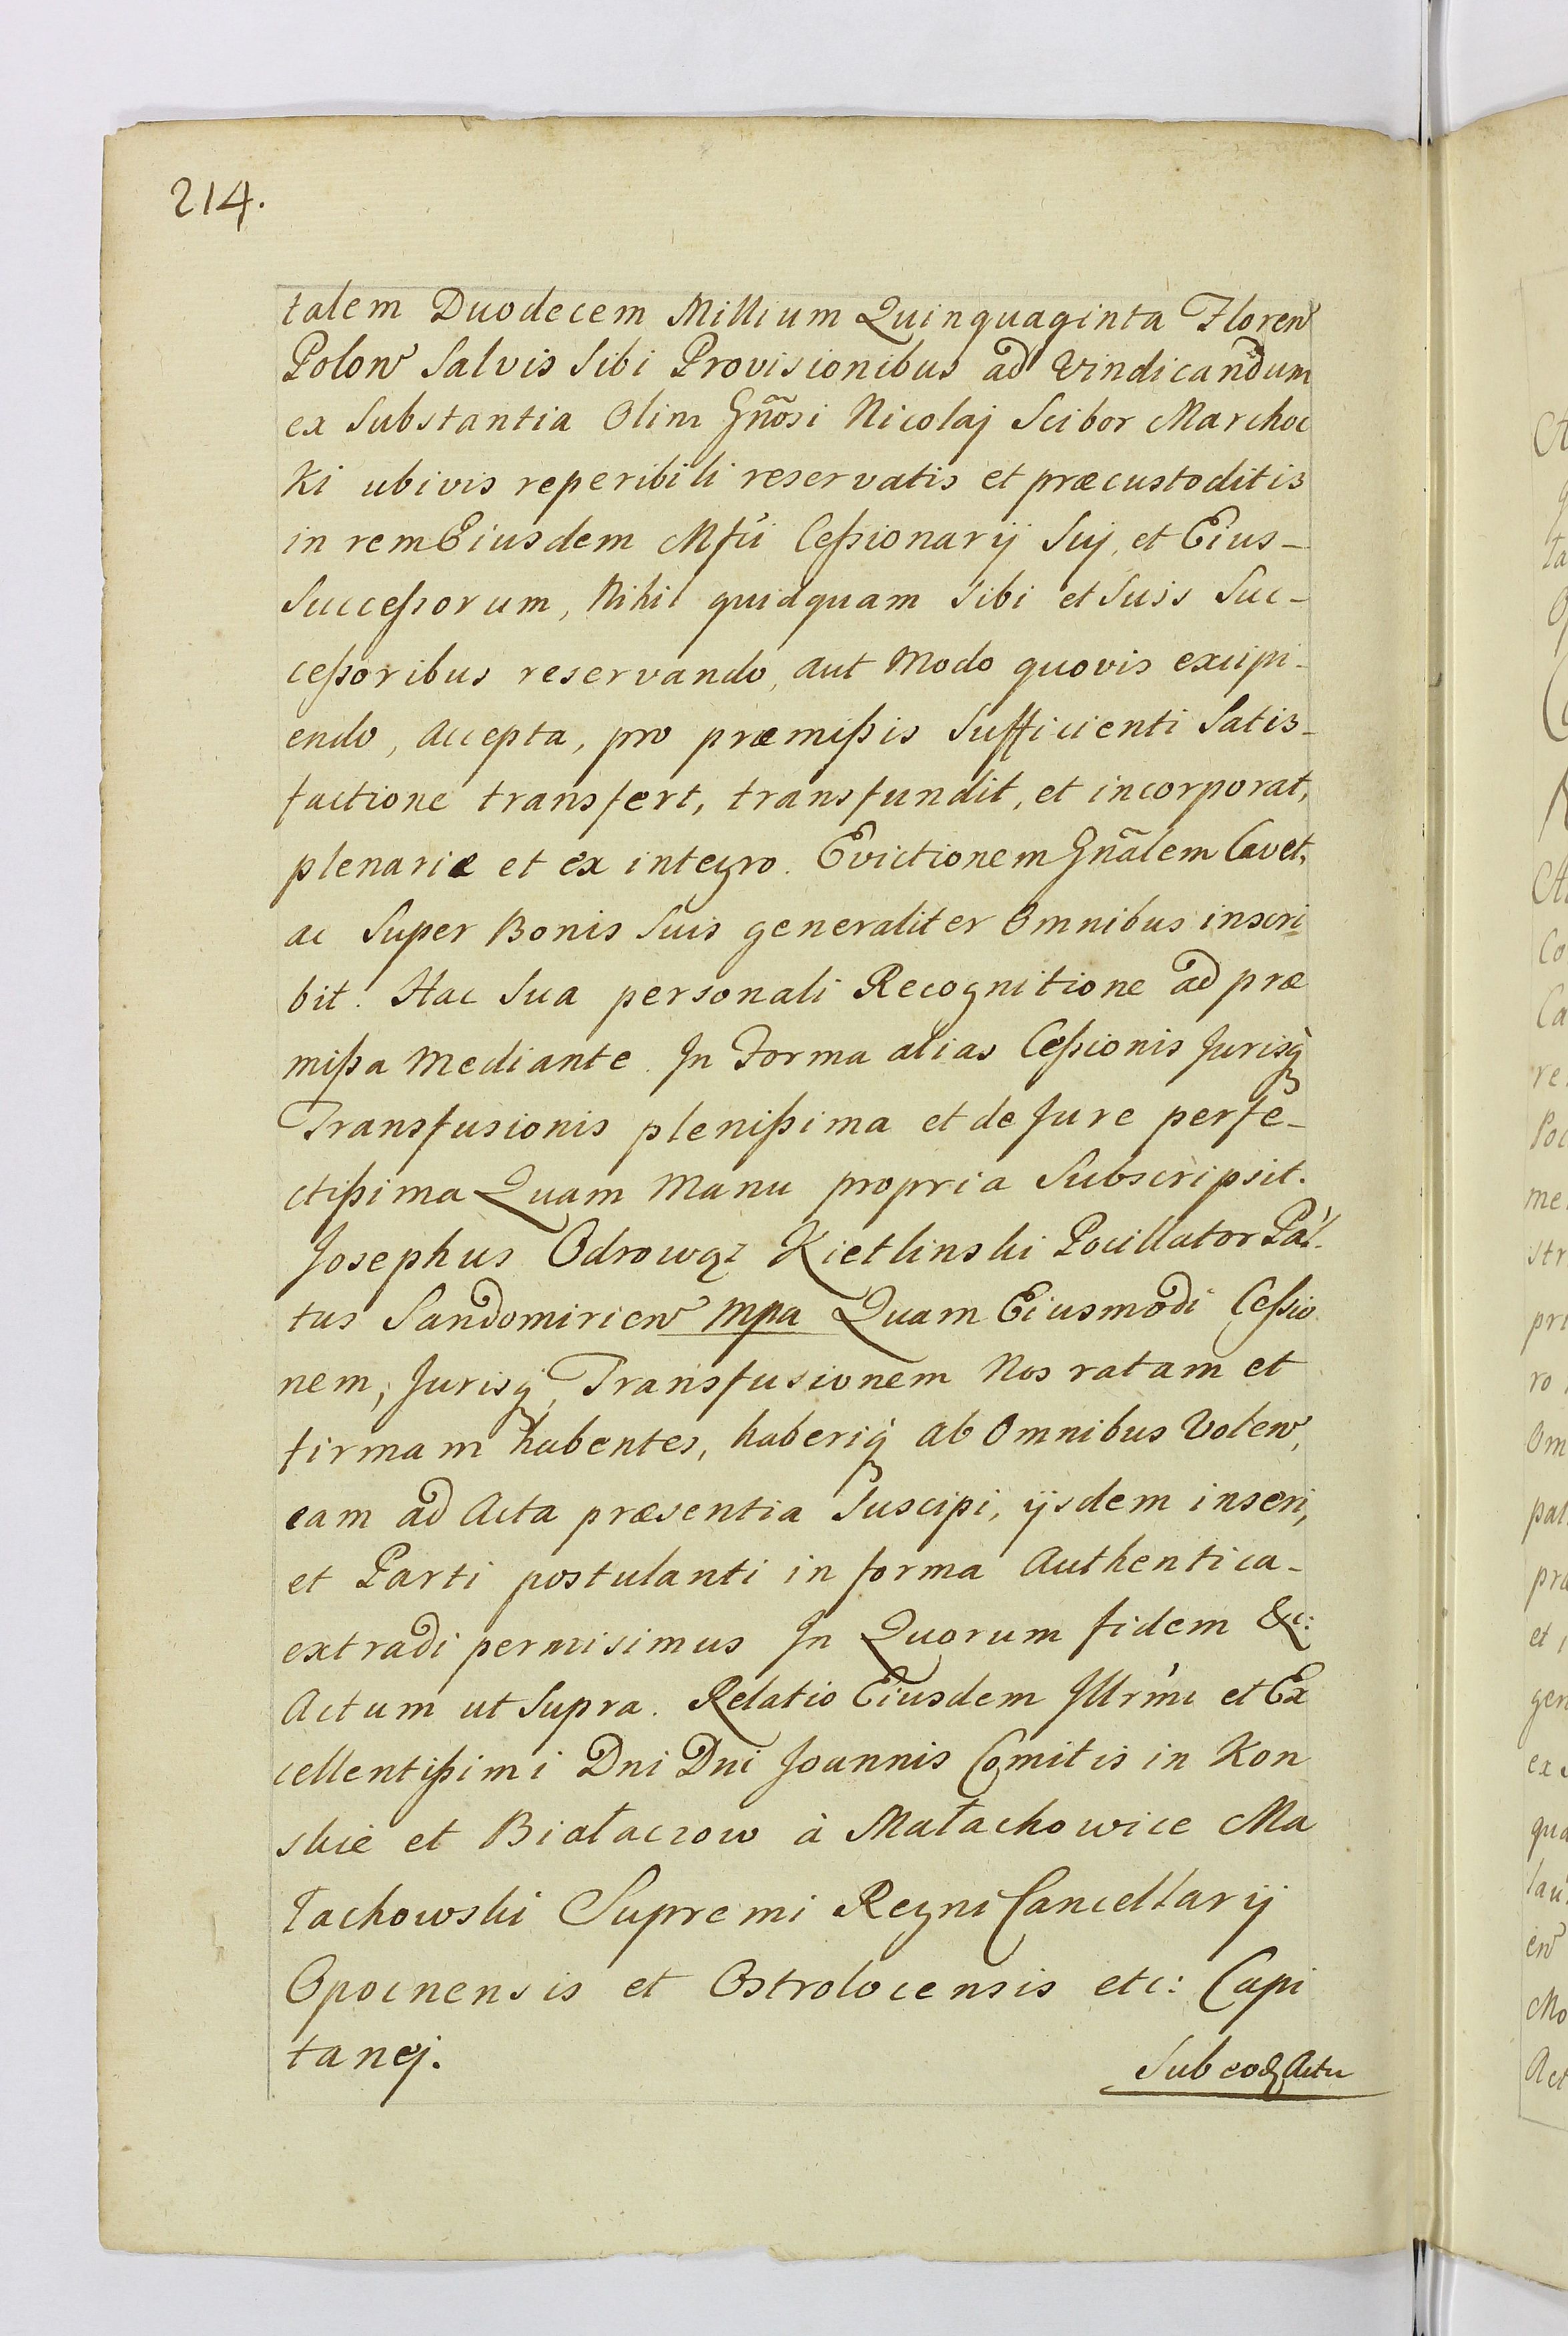 214.
talem Duodecem Millium Quinquaginta Floren
Polon Salvis Sibi Provisionibus ad Vindicandum
ex Substantia Olim Gñõsi Nicolaj Scibor Marchoc
Ki ubivis reperibili reservatis et præcustoditis
in rem Eiusdem Mfci Ceſsionarij Suj, et Eius-
Succeſsorum, Nihil quidquam Sibi et Suis Suc-
ceſsoribus reservando, aut Modo quovis excipi-
endo, Accepta, pro præmiſsis Sufficienti Satis-
factione transfert, transfundit, et incorporat,
plenarie et ex integro. Evictionem Gñãlem Cavet,
ac Super Bonis Suis generaliter Omnibus inscri
bit. Hac Sua personali Recognitione ad præ
miſsa Mediante. In Forma alias Ceſsionis Jurisq̀
Transfusionis pleniſsima et de Jure perfe-
ctiſsima Quam Manu propria Subscripsit.
Josephus Odrowąz Kietlinski Pocillator Pal-
tus Sandomirien mpa Quam Eiusmodi Ceſsio
nem, Jurisq̀ Transfusionem Nos ratam et
firmam habentes, haberiq̀ ab Omnibus Volen,
eam ad Acta præsentia Suscipi, ijsdem inseri,
et Parti postulanti in forma Authentica-
extradi permisimus In Quorum fidem &c:
Actum ut Supra. Relatio Eiusdem Illr̀mi et Ex
cellentiſsimi Dni Dni Joannis Comitis in Kon
skie et Białaczow à Małachowice Ma
łachowski Supremi Regni Cancellarij
Opocnensis et Ostrolocensis etc: Capi
tanej.
Sub eodꝫ Actu